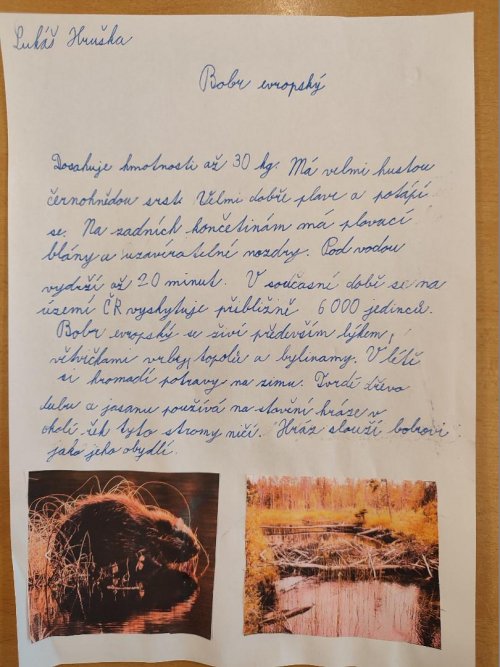 Lukáš Hruška
Bobr evropský
Dosahuje hmotnosti až 30 kg. Má velmi hustou
černohnědou srst. Velmi dobře plave a potápí
se. Na zadních končetinám má plovací
blány a uzavíratelní nozdry. Pod vodou
vydrží až 20 minut. V současné době se na
území ČR vyskytuje přibližně 6 000 jedinců.
Bobr evropský se živí především lýkem,
větvičkami vrby, topolu a bylinamy. V létě
si hromadí potravy na zimu. Tvrdé dřevo
dubu a jasanu používá na stavění hráze v
okolí řek tyto stromy ničí. Hráz slouží bobrovi
jako jeho obydlí.